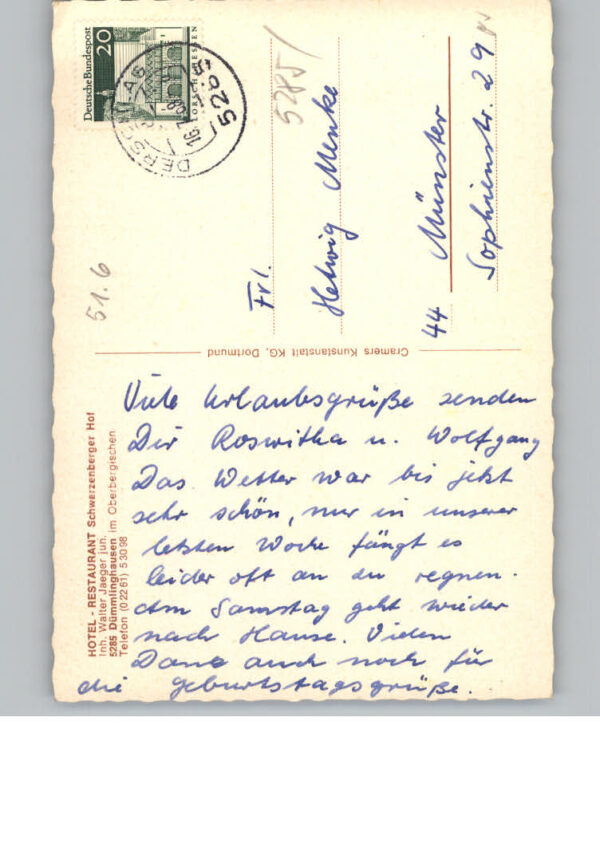 Deutsche Bundespost
20
LORSCH/HESSEN
5285
5285/
Frl.
Helwig Menke
44 Münster
Sophienstr. 29
51.6
Cramers Kunstanstalt KG, Dortmund
HOTEL - RESTAURANT Schwarzenberger Hof
Inh. Walter Jaeger jun.
5285 Dümmlinghausen im Oberbergischen
Telefon (0 22 61) 5 30 98
Viele Urlaubsgrüße senden
Dir Roswitha u. Wolfgang
Das Wetter war bis jetzt
sehr schön, nur in unserer
letzten Woche fängt es
leider oft an zu regnen.
Am Samstag geht wieder
nach Hause. Vielen
Dank auch noch für
die Geburtstagsgrüße.